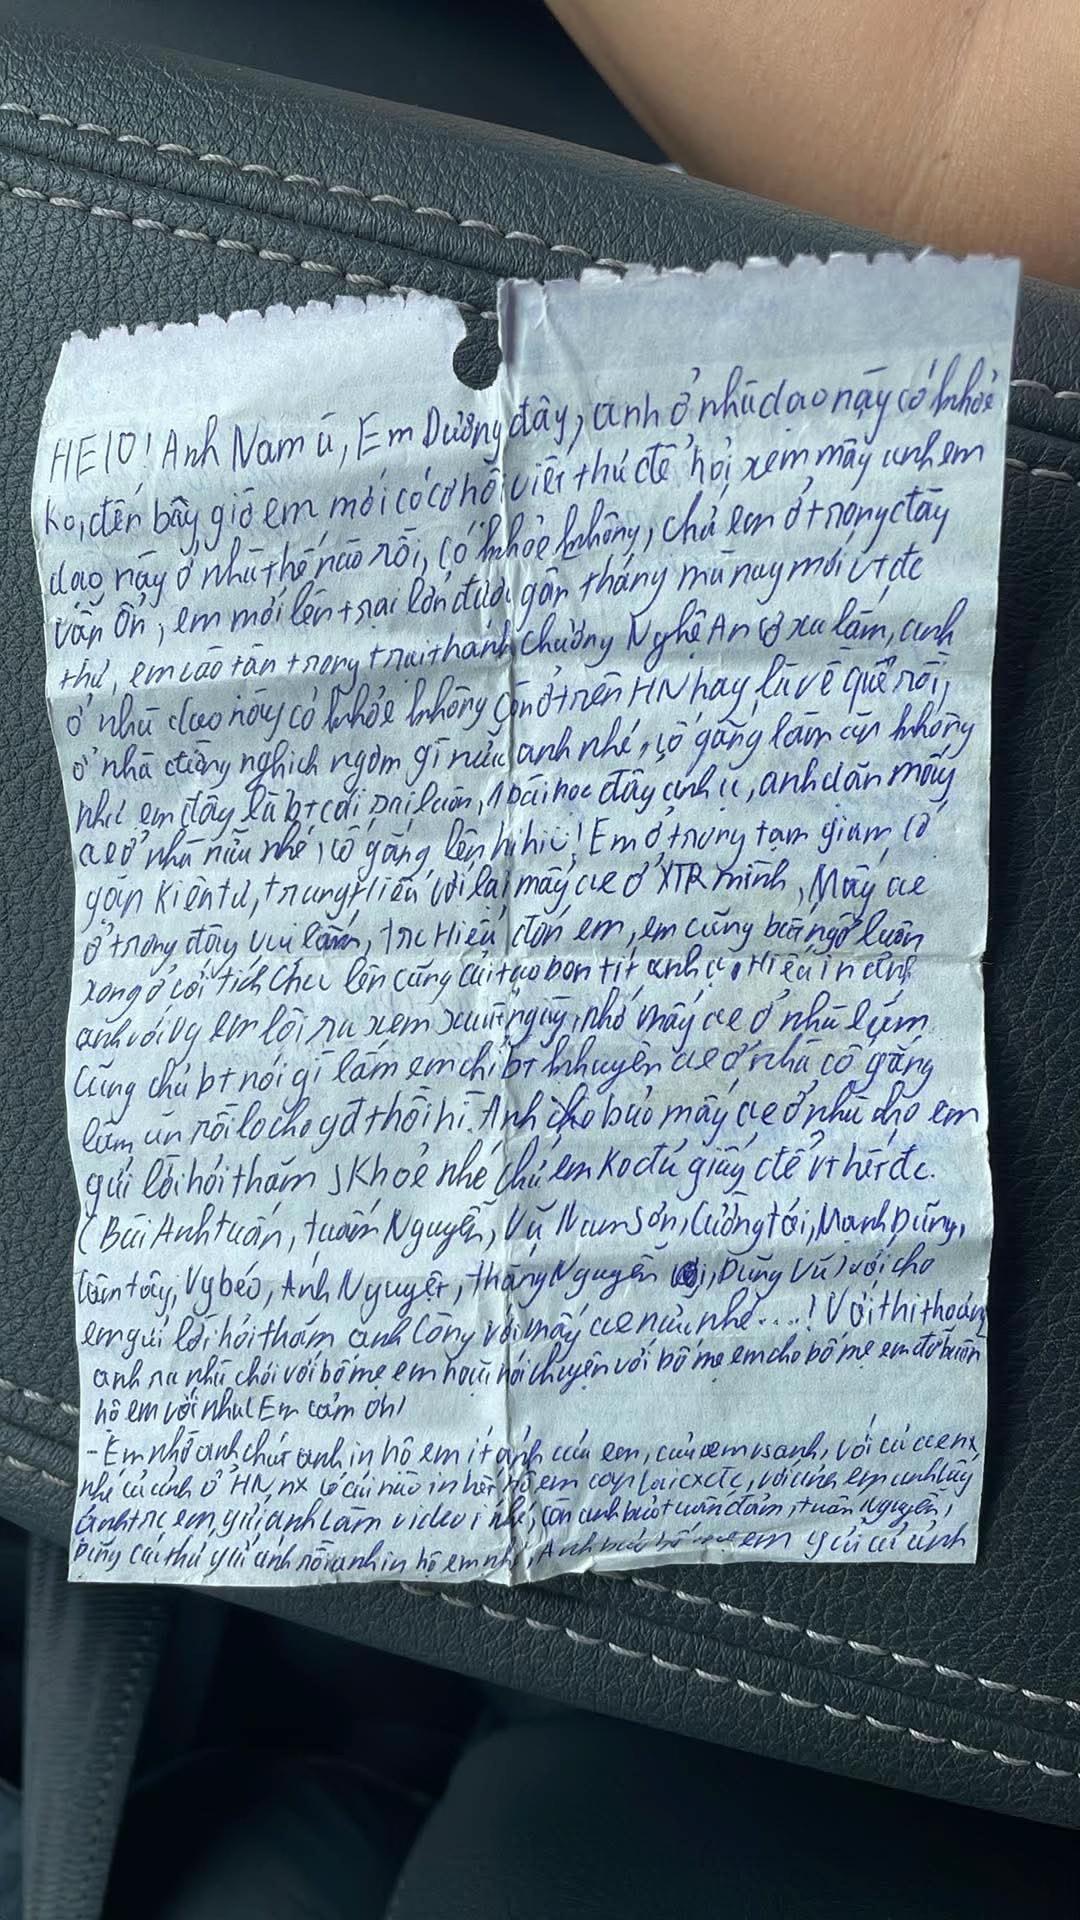 HElO! Anh Nam ù, Em Dương đây, anh ở nhà dạo này có khoẻ
ko, đến bây giờ em mới có cơ hội viết thư để hỏi xem mấy anh em
dạo này ở nhà thế nào rồi, có khoẻ không, chứ em ở trong đây
vẫn ổn, em mới lên trại lớn được gần tháng mà nay mới vt đc
thư, em cao tân trong trại thanh chương Nghệ An cơ xa lắm, anh
ở nhà dạo này có khoẻ không còn ở trên HN hay là về quê rồi,
ở nhà đừng nghịch ngợm gì nữa anh nhé, cố gắng làm ăn không
như em đây là bt cái sai luôn, 1 bài học đấy anh ạ, anh dặn mấy
ae ở nhà nữa nhé, cố gắng lên hihi! Em ở trong tạm giam có
gặp Kiên tư, trung Hiếu với lại mấy ae ở XTR mình, Mấy ae
ở trong đây vui lắm, trc Hiếu đón em, em cũng bất ngờ luôn
xong ở với tích chu lên cũng cải tạo bọn tít anh ạ, Hiếu in ảnh
anh với vy em lôi ra xem xuất ngày, nhớ mấy ae ở nhà lắm
cũng chả bt nói gì lắm em chỉ bt khuyên ae ở nhà cố gắng
làm ăn rồi lo cho gđ thôi hì. Anh cho bảo mấy ae ở nhà cho em
gửi lời hỏi thăm skhoẻ nhé chứ em ko đủ giấy để vt hết đc.
(Bùi Anh tuấn, tuấn Nguyễn, Vũ Nam Sơn, Cường tới, Mạnh Dũng,
tây, Vy béo, Ánh Nguyệt, thắng Nguyễn, Dũng Vũ) với cho
em gửi lời hỏi thăm anh Công với mấy ae nữa nhé....! Với thi thoảng
anh ra nhà chơi với bố mẹ em ngồi nói chuyện với bố mẹ em cho bố mẹ em đỡ buồn
hộ em với nha! Em cảm ơn!
- Em nhờ anh chút anh in hộ em ít ảnh của em, của em vs anh, với cả ae nx
nhé cả ảnh ở HN nx có cái nào in hết hộ em với ảnh em anh lấy
ảnh trc em gửi anh làm video í nhé, còn anh bảo tuấn, tuấn Nguyễn,
gửi anh rồi anh in hộ em nhé, Anh bảo bố mẹ em gửi cả ảnh